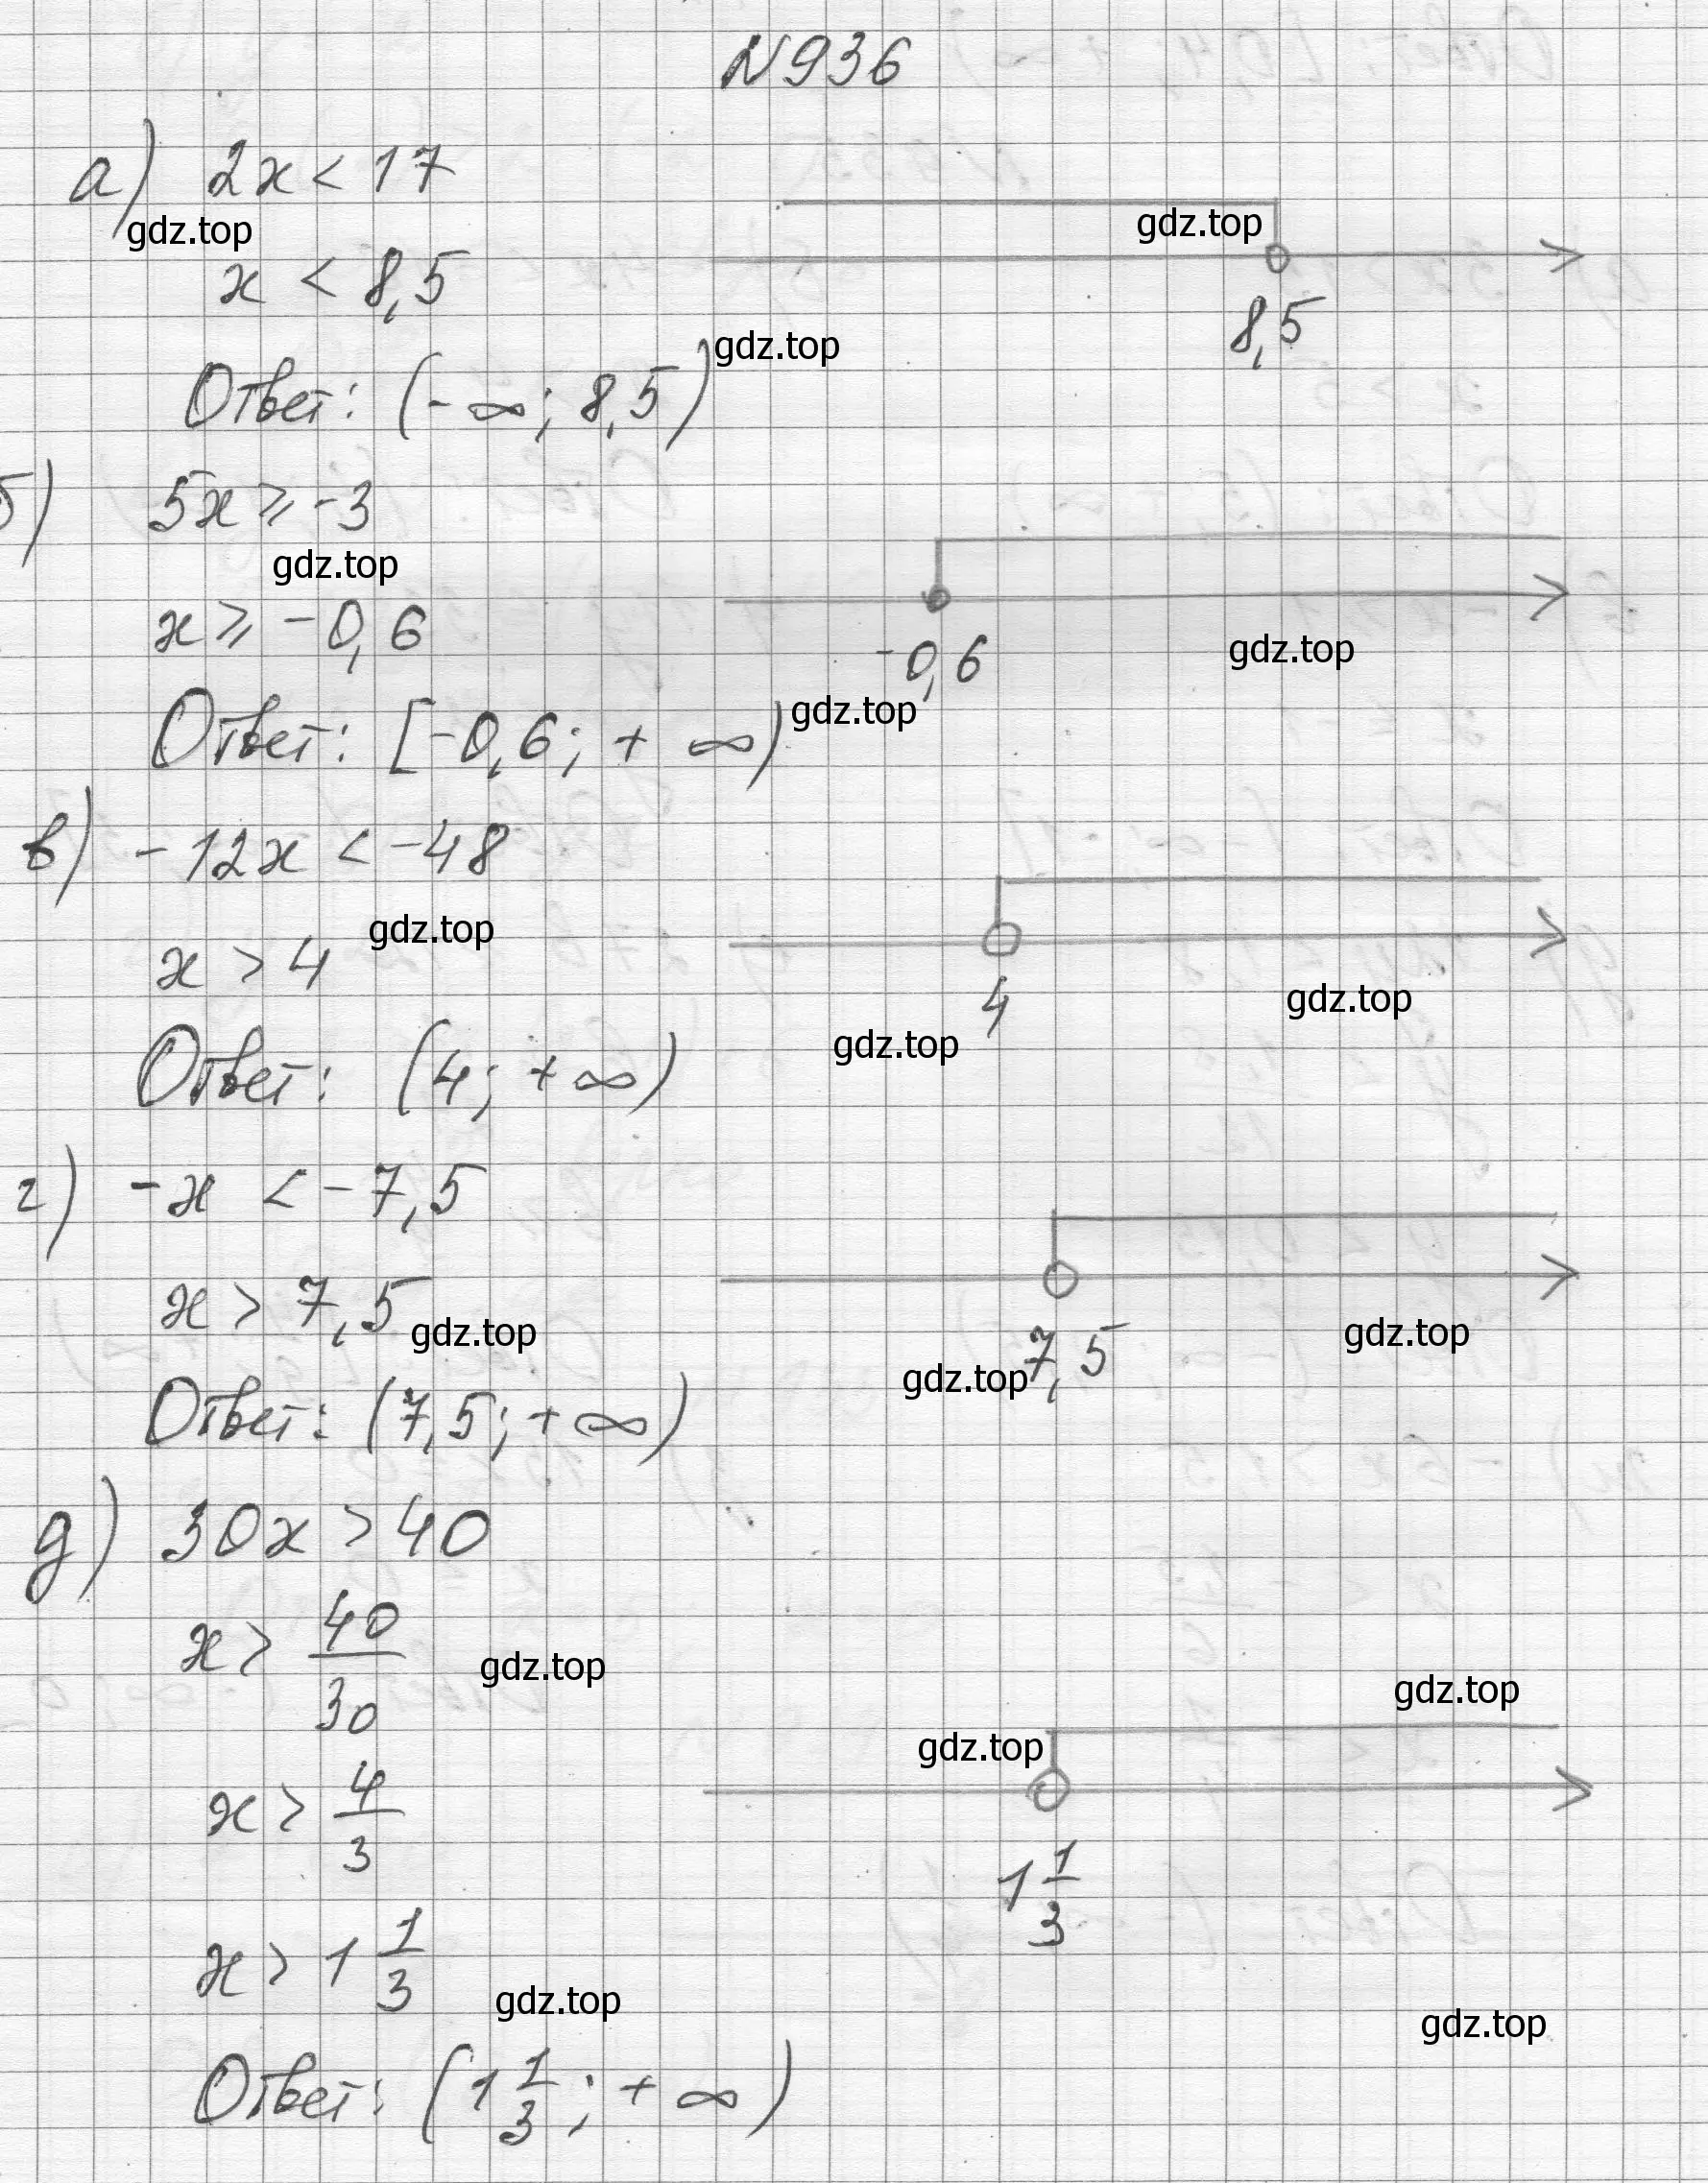 N936
а) 2x < 17
gdz.top
gdz.top
x < 8,5
8,5
gdz.top
Ответ: (-∞; 8,5)
б) 5x ⩾ -3
gdz.top
x ⩾ -0,6
-0,6
gdz.top
Ответ: [-0,6; +∞)
gdz.top
в) -12x < -48
gdz.top
x > 4
4
gdz.top
gdz.top
Ответ: (4; +∞)
г) -x < -7,5
x > 7,5
gdz.top
7,5
gdz.top
gdz.top
Ответ: (7,5; +∞)
д) 30x > 40
x > 40/30
gdz.top
gdz.top
gdz.top
x > 4/3
1 1/3
x > 1 1/3
gdz.top
gdz.top
Ответ: (1 1/3; +∞)